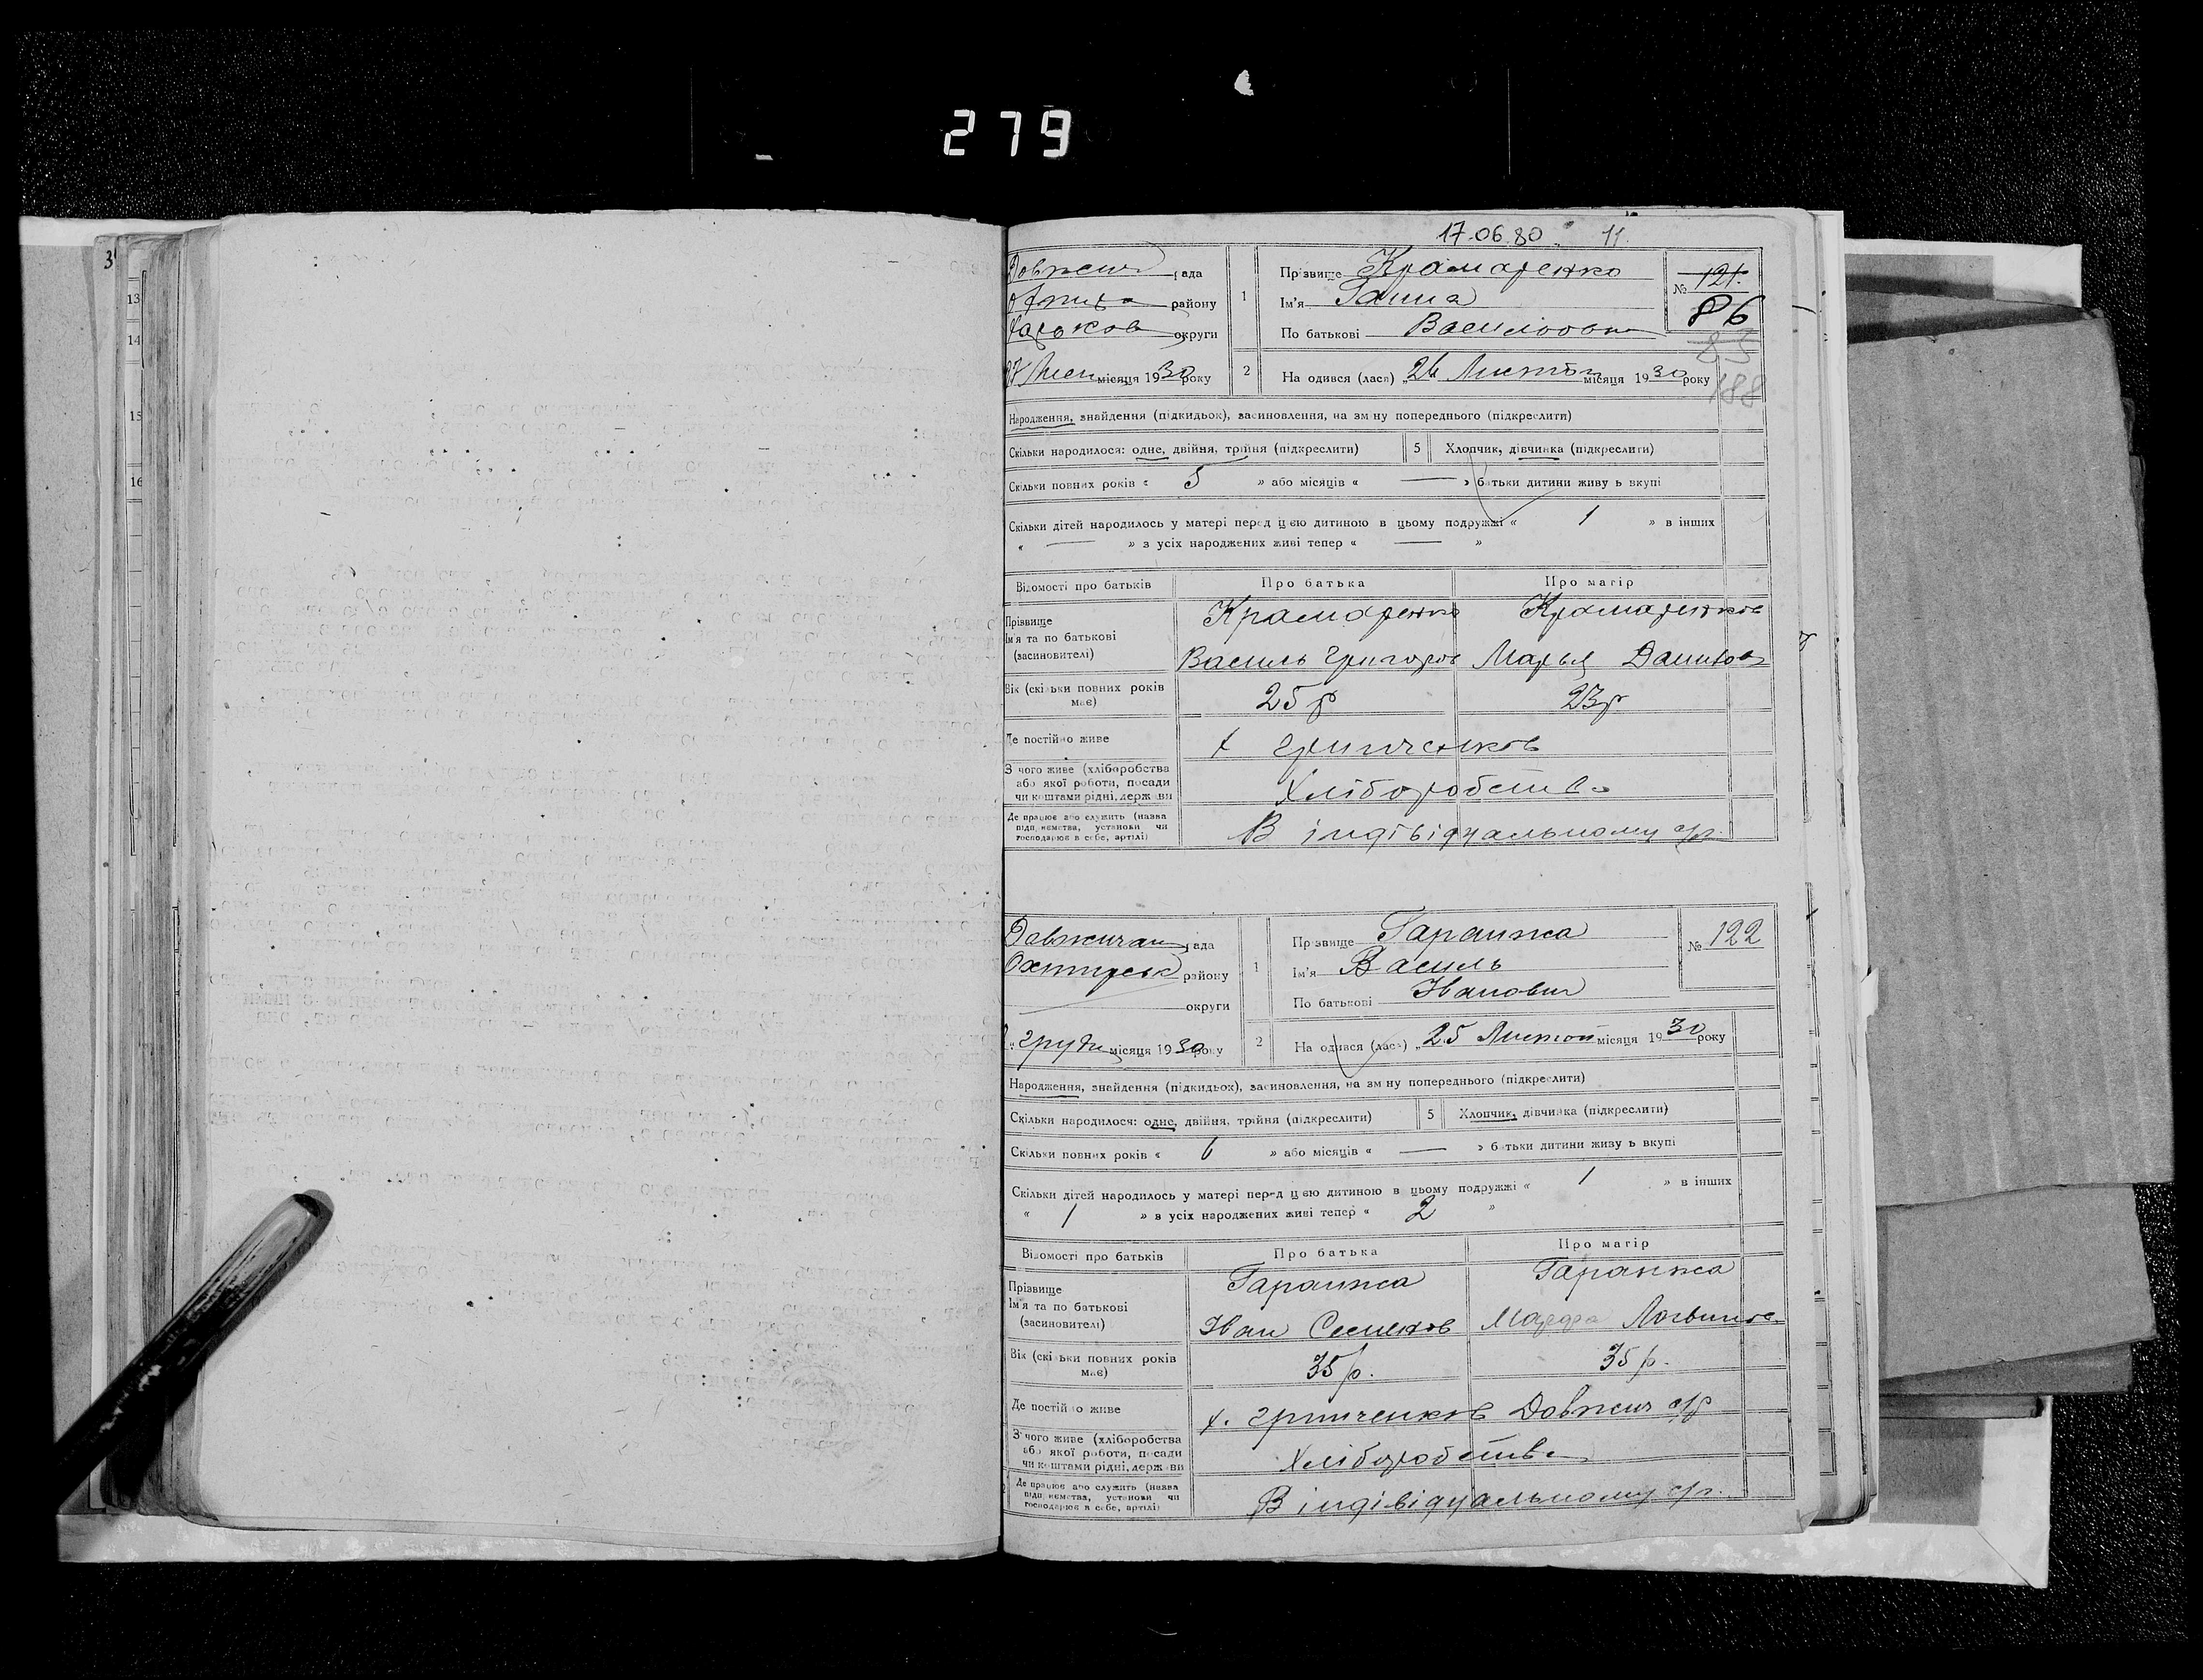 279
17.06.80 11.
Довжич рада
район
Харьков округи
27 Лист місяця 1930 року
1 Прізвище Крамаренко
Ім'я Ганна
По батькові Василовна
№ 121.
86
85
188
2 На одився (лася) „26 Листоп місяця 1930 року
Народження, знайдення (підкидьок), засиновлення, на зм ну попереднього (підкреслити)
Скільки народилося: одне, двійня, трійня (підкреслити) 5 Хлопчик, дівчинка (підкреслити)
Скільки повних років « 5 » або місяців « — » батьки дитини живу ь вкупі
Скільки дітей народилось у матері перед цією дитиною в цьому подружжі « 1 » в інших
« — » з усіх народжених живі тепер « — »
Відомості про батьків Про батька Про матір
Прізвище Крамаренко Крамаренков
Ім'я та по батькові
(засиновителі) Василь Григоров Марья Данилов
Вік (скільки повних років має) 25 р 23 р
Де постійно живе х Гринченков
З чого живе (хліборобства
або якої роботи, посади
чи коштами рідні, держави Хлібororобство
Де працює або служить (назва
підприємства, установи чи
господарює в себе, артілі) В індівідуальному с/г.
Довжичан рада
Охтирськ району
округи
грудн місяця 1930 року
1 Прізвище Гаранжа
Ім'я Василь
По батькові Іванович
№ 122
2 На одився (лася) „25 Листоп місяця 1930 року
Народження, знайдення (підкидьок), засиновлення, на зм ну попереднього (підкреслити)
Скільки народилося: одне, двійня, трійня (підкреслити) 5 Хлопчик, дівчинка (підкреслити)
Скільки повних років « 6 » або місяців « — » батьки дитини живу ь вкупі
Скільки дітей народилось у матері перед цією дитиною в цьому подружжі « 1 » в інших
« 1 » з усіх народжених живі тепер « 2 »
Відомості про батьків Про батька Про матір
Прізвище Гаранжа Гаранжа
Ім'я та по батькові
(засиновителі) Иван Семенов Марфа Логвинов
Вік (скільки повних років має) 35 р. 35 р.
Де постійно живе х. Гринченков Довжич с/р
З чого живе (хліборобства
або якої роботи, посади
чи коштами рідні, держави Хліборобство
Де працює або служить (назва
підприємства, установи чи
господарює в себе, артілі) В індівідуальному с/г.